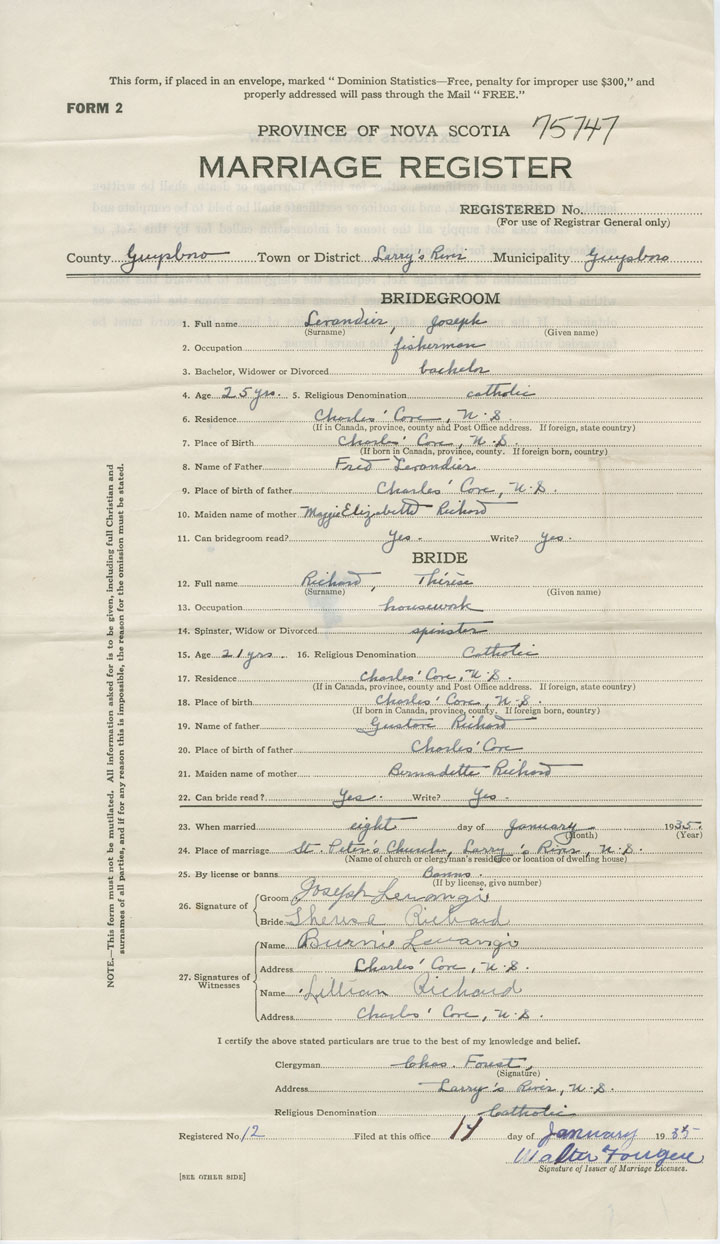 This form, if placed in an envelope, marked " Dominion Statistics—Free, penalty for improper use $300," and
properly addressed will pass through the Mail " FREE."
FORM 2
PROVINCE OF NOVA SCOTIA 75747
MARRIAGE REGISTER
REGISTERED No.
(For use of Registrar General only)
County Guysboro Town or District Larry's River Municipality Guysboro
BRIDEGROOM
1. Full name Levandier, Joseph
(Surname) (Given name)
2. Occupation fisherman
3. Bachelor, Widower or Divorced bachelor
4. Age 25 yrs. 5. Religious Denomination catholic
6. Residence Charles' Cove, N.S.
(If in Canada, province, county and Post Office address. If foreign, state country)
7. Place of Birth Charles' Cove, N.S.
(If born in Canada, province, county. If foreign born, country)
8. Name of Father Fred Levandier
9. Place of birth of father Charles' Cove, N.S.
10. Maiden name of mother Maggie Elizabeth Richard
11. Can bridegroom read? Yes. Write? Yes.
BRIDE
12. Full name Richard, Thérèse
(Surname) (Given name)
13. Occupation housework
14. Spinster, Widow or Divorced spinster
15. Age 21 yrs. 16. Religious Denomination Catholic
17. Residence Charles' Cove, N.S.
(If in Canada, province, county and Post Office address. If foreign, state country)
18. Place of birth Charles' Cove, N.S.
(If born in Canada, province, county. If foreign born, country)
19. Name of father Gustave Richard
20. Place of birth of father Charles' Cove
21. Maiden name of mother Bernadette Richard
22. Can bride read? Yes. Write? Yes.
23. When married eight day of January 1935.
(Month) (Year)
24. Place of marriage St. Peter's Church, Larry's River, N.S.
(Name of church or clergyman's residence or location of dwelling house)
25. By license or banns Banns.
(If by license, give number)
26. Signature of Groom Joseph Levangie
Bride Theresa Richard
27. Signatures of Witnesses Name Burnie Levangie
Address Charles' Cove, N.S.
Name Lillian Richard
Address Charles' Cove, N.S.
I certify the above stated particulars are true to the best of my knowledge and belief.
Clergyman Chas. Forest,
(Signature)
Address Larry's River, N.S.
Religious Denomination Catholic
Registered No 12 Filed at this office 14 day of January 1935
Walter Fougere
Signature of Issuer of Marriage Licenses.
[SEE OTHER SIDE]
NOTE.—This form must not be mutilated. All information asked for is to be given, including full Christian and
surnames of all parties, and if for any reason this is impossible, the reason for the omission must be stated.